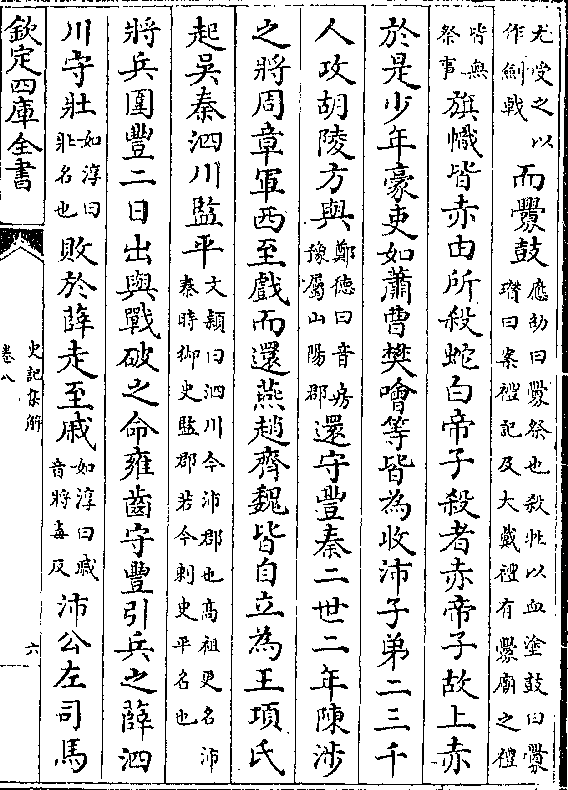 尤受之以作劍戟
皆無祭事
而釁鼓
應劭曰釁祭也殺牲以血塗鼓曰釁
瓚曰案禮記及大戴禮有釁廟之禮
旗幟皆赤由所殺蛇白帝子殺者赤帝子故上赤
於是少年豪吏如蕭曹樊噲等皆為收沛子弟二三千
人攻胡陵方與
鄭德曰音房豫屬山陽郡
還守豐秦二世二年陳涉
之將周章軍西至戲而還燕趙齊魏皆自立為王項氏
起吳秦泗川監平
文頴曰泗川今沛郡也髙祖更名沛
秦時御史監郡若今刺史平名也
將兵圍豐二日出與戰破之命雍齒守豐引兵之薛泗
川守壯
如淳曰壯名也
敗於薛走至戚
如淳曰戚音將毒反
沛公左司馬
欽定四庫全書
史記集解
卷八
六